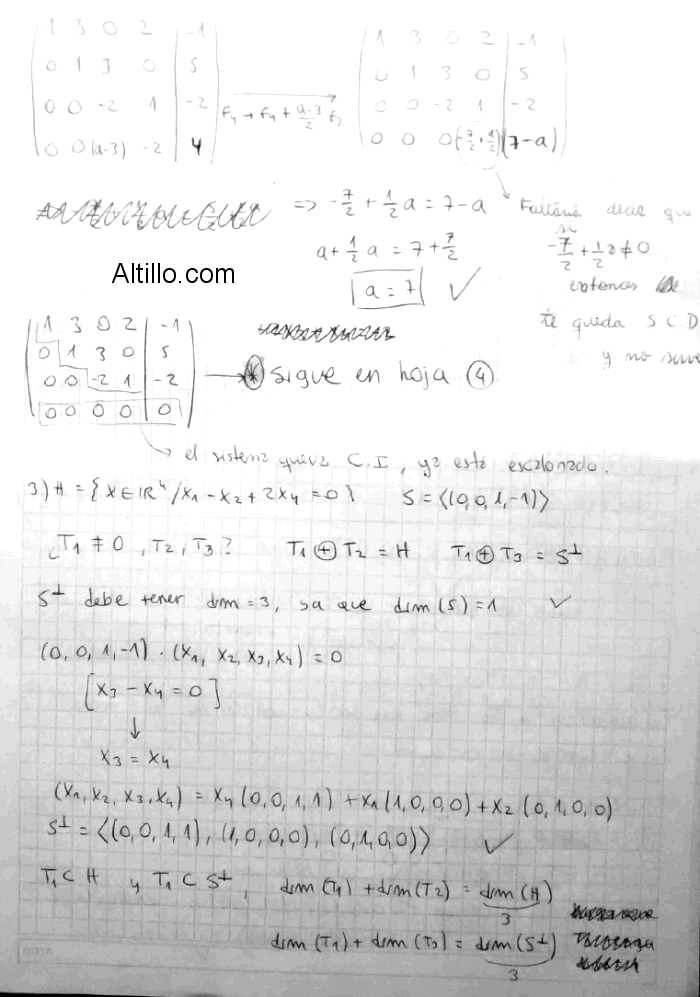 1 3 0 2 | -1
0 1 3 0 | 5
0 0 -2 1 | -2
0 0 (a-3) -2 | 4
F4 → F4 + (a-3)/2 F3
1 3 0 2 | -1
0 1 3 0 | 5
0 0 -2 1 | -2
0 0 0 (-7/2 + 1/2 a) | (7-a)
=> -7/2 + 1/2 a = 7-a
a + 1/2 a = 7 + 7/2
a = 7 ✓
Faltaría decir que
si
-7/2 + 1/2 a ≠ 0
entonces
te queda SCD
y no sirve
Altillo.com
1 3 0 2 | -1
0 1 3 0 | 5
0 0 -2 1 | -2
0 0 0 0 | 0
→ * sigue en hoja (4)
→ el sistema queda C.I, ya está escalonado.
3) H = {X ∈ IR⁴ / X1 - X2 + 2X4 = 0} S = ⟨(0,0,1,-1)⟩
¿T1 ≠ 0, T2, T3? T1 ⊕ T2 = H T1 ⊕ T3 = S⊥
S⊥ debe tener dim = 3, ya que dim(S) = 1 ✓
(0,0,1,-1) · (X1, X2, X3, X4) = 0
[X3 - X4 = 0]
↓
X3 = X4
(X1, X2, X3, X4) = X4 (0,0,1,1) + X1 (1,0,0,0) + X2 (0,1,0,0)
S⊥ = ⟨(0,0,1,1), (1,0,0,0), (0,1,0,0)⟩ ✓
T1 ⊂ H y T1 ⊂ S⊥, dim(T1) + dim(T2) = dim(H)
3
dim(T1) + dim(T3) = dim(S⊥)
3